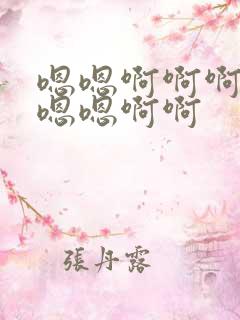 嗯嗯啊啊啊
嗯嗯啊啊
張丹露